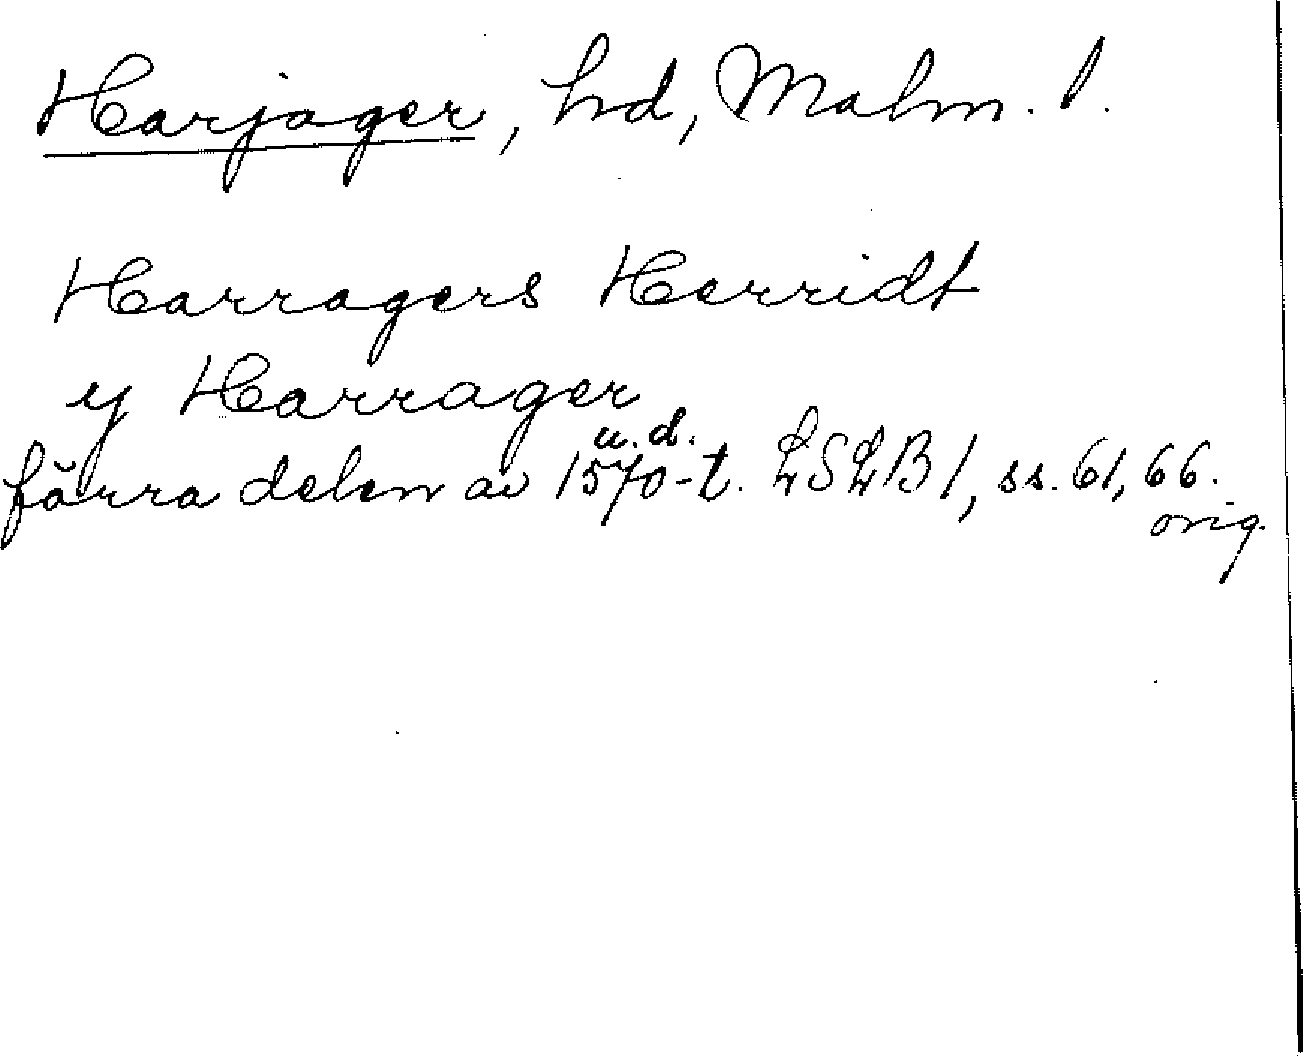 Harjager, hd, Malm. l.
Harragers Herridt
y Harrager
u. d.
förra delen av 1570-t. LSLB 1, ss. 61, 66.
orig.